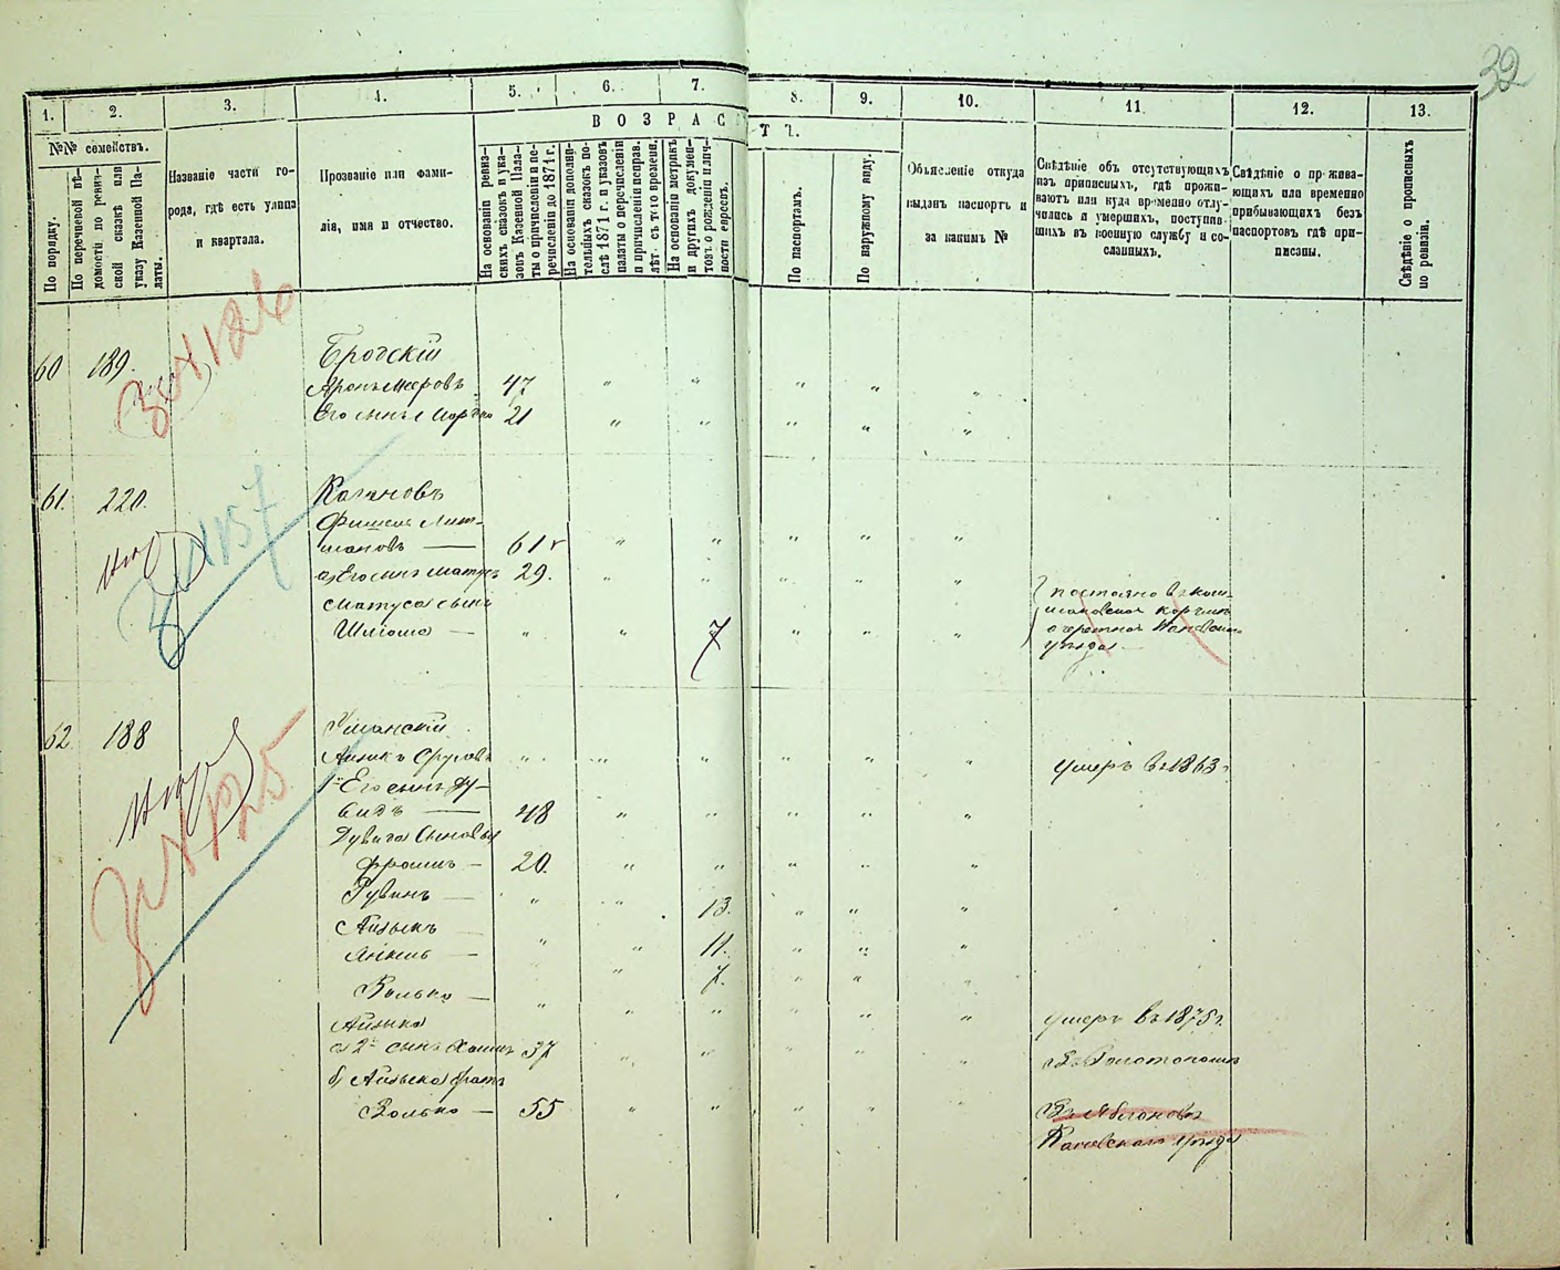 32
1. 2. 3. 4. 5. 6. 7. 8. 9. 10. 11. 12. 13.
№№ семействъ.
По порядку.
По перечневой вѣ-
домости по ревиз-
ской сказкѣ или
указу Казенной Па-
латы.
Названіе части го-
рода, гдѣ есть улица
и квартала.
Прозваніе или фами-
лія, имя и отчество.
ВОЗРАСТЪ.
На основаніи ревиз-
скихъ сказокъ и ука-
зовъ Казенной Пала-
ты о причисленіи и пе-
речисленіи до 1871 г.
На основаніи дополни-
тельныхъ сказокъ по-
слѣ 1871 г. и указовъ
палаты о перечисленіи
и причисленіи исправ.
лѣт. съ того времени.
На основаніи метрикъ
и другихъ докумен-
товъ о рожденіи и лич-
ности евреевъ.
По паспортамъ.
По наружному виду.
Объясленіе откуда
выданъ паспортъ и
за какимъ №
Свѣдѣніе объ отсутствующихъ
изъ приписныхъ, гдѣ прожи-
ваютъ или куда временно отлу-
чились и умершихъ, поступив-
шихъ въ военную службу и со-
сланныхъ.
Свѣдѣніе о прожива-
ющихъ или временно
прибывающихъ безъ
паспортовъ гдѣ при-
писаны.
Свѣдѣніе о прописныхъ
по ревизіи.
60 189. Бродскій
Аронъ Мееровъ 47 " " " " "
Его сынъ Мордко 21 " " " " "
61. 220. Кагановъ
Фишель Лит-
мановъ — 61 " " " " "
а) Его сынъ Матусъ 29. " " " " "
Матуса сынъ
Шлиома — " " 7 " " "
постоянно
уѣзда
62 188 Уманскій
Айзикъ Сруловъ " " " " " " умеръ въ 1863 г
1й Его сынъ Ду-
видъ — 48 " " " " "
Дувида сыновья
Фроимъ — 20. " " " " "
Рувинъ — " " 13. " " "
Айзыкъ — " " 11. " " "
Янкель — " 7. " " "
Волько — " " " " " " умеръ въ 1875 г.
Айзыка
а) 2й сынъ Хаимъ 37 " " " " " Въ Золотоноше
б) Айзыка братъ
Волько — 55 " " " " " Въ Яблоновѣ
Каневскаго уѣзда